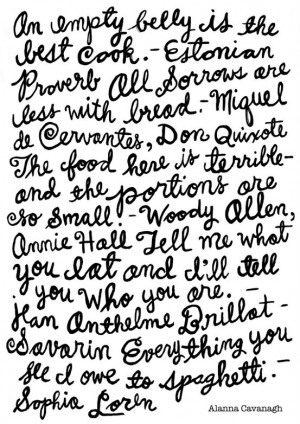 An empty belly is the
best cook.-Estonian
Proverb All Sorrows are
less with bread.-Miguel
de Cervantes, Don Quixote
The food here is terrible-
and the portions are
so small.-Woody Allen,
Annie Hall Tell me what
you Eat and I'll tell
you Who you are. -
Jean Anthelme Brillat-
Savarin Everything you
see I owe to spaghetti.-
Sophia Loren
Alanna Cavanagh